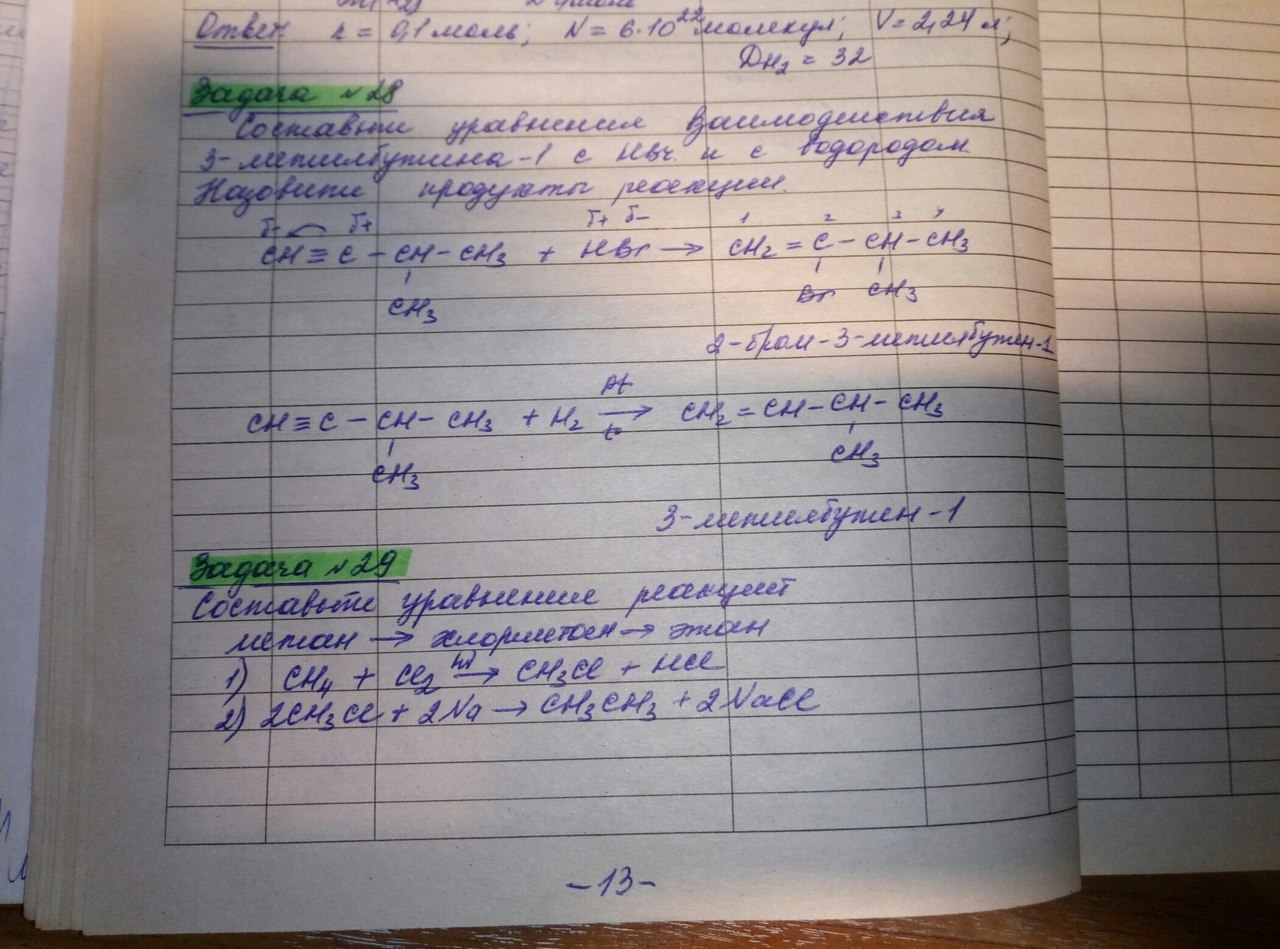 Ответ: n = 0,1 моль; N = 6·10²² молекул; V = 2,24 л;
D H₂ = 32
Задача №28
Составьте уравнения взаимодействия
3-метилбутина-1 с HBr. и с водородом.
Назовите продукты реакции.
δ- δ+ δ+ δ- 1 2 3 4
CH ≡ C – CH – CH₃ + HBr → CH₂ = C – CH – CH₃
CH₃ Br CH₃
2-бром-3-метилбутен-1
Pt
CH ≡ C – CH – CH₃ + H₂ → CH₂ = CH – CH – CH₃
t
CH₃ CH₃
3-метилбутен-1
Задача №29
Составьте уравнение реакции
метан → хлорметан → этан
1) CH₄ + Cl₂ →hν CH₃Cl + HCl
2) 2CH₃Cl + 2Na → CH₃CH₃ + 2NaCl
-13-